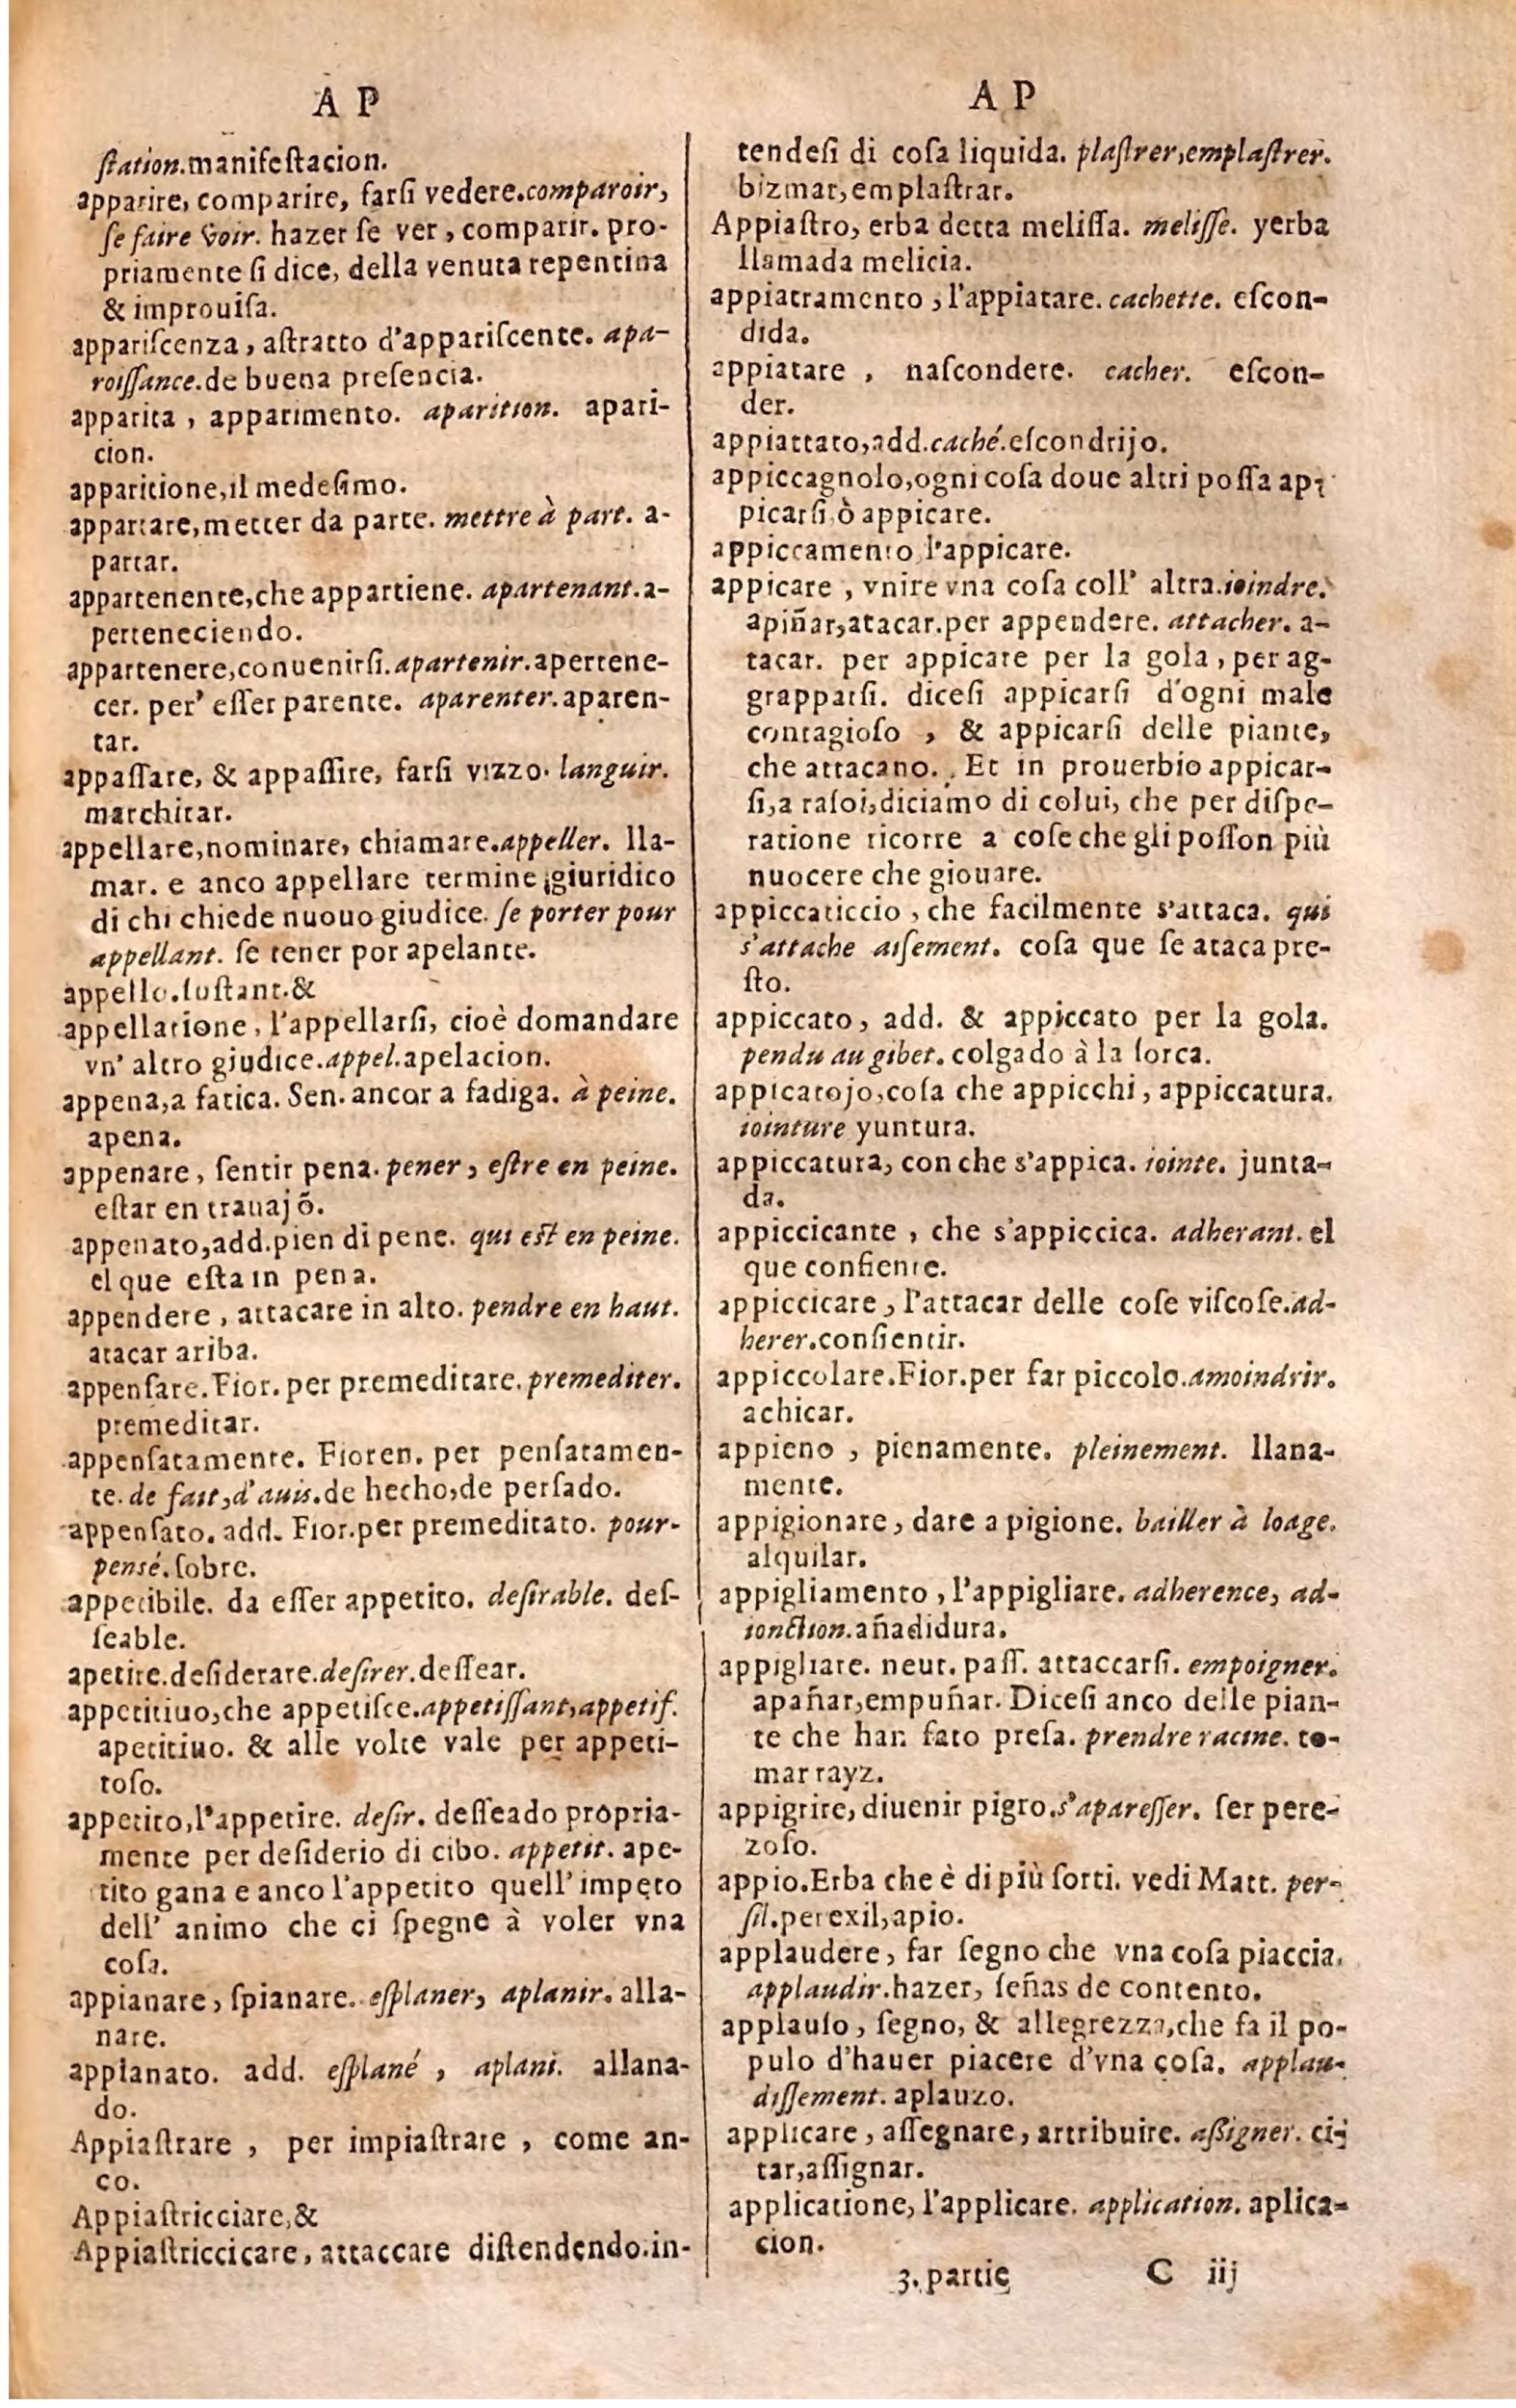 A P
ſtation.manifeſtacion.
apparire, comparire, farſi vedere.comparoir,
ſe faire voir. hazer ſe ver, comparir. pro-
priamente ſi dice, della venuta repentina
& improuiſa.
appariſcenza, aſtratto d'appariſcente. apa-
roiſſance.de buena preſencia.
apparita, apparimento. aparition. apari-
cion.
apparitione,il medeſimo.
appartare,metter da parte. mettre à part. a-
partar.
appartenente,che appartiene. apartenant.a-
perteneciendo.
appartenere,conuenirſi.apartenir.apertene-
cer. per' eſſer parente. aparenter.aparen-
tar.
appaſſare, & appaſſire, farſi vizzo. languir.
marchitar.
appellare,nominare, chiamare.appeller. lla-
mar. e anco appellare termine giuridico
di chi chiede nuouo giudice. ſe porter pour
appellant. ſe tener por apelante.
appello.ſuſtant.&
appellatione, l'appellarſi, cioè domandare
vn' altro giudice.appel.apelacion.
appena,a fatica. Sen. ancor a fadiga. à peine.
apena.
appenare, ſentir pena. pener, eſtre en peine.
eſtar en trauajõ.
appenato,add.pien di pene. qui eſt en peine.
el que eſta in pena.
appendere, attacare in alto. pendre en haut.
atacar ariba.
appenſare.Fior. per premeditare.premediter.
premeditar.
appenſatamente. Fioren. per penſatamen-
te. de fait,d'auis.de hecho,de perſado.
appenſato. add. Fior.per premeditato. pour-
pensé.ſobre.
appetibile. da eſſer appetito. deſirable. deſ-
ſeable.
apetire.deſiderare.deſirer.deſſear.
appetitiuo,che appetiſce.appetiſſant,appetif.
apetitiuo. & alle volte vale per appeti-
toſo.
appetito,l'appetire. deſir. deſſeado propria-
mente per deſiderio di cibo. appetit. ape-
tito gana e anco l'appetito quell' impeto
dell' animo che ci ſpegne à voler vna
coſa.
appianare, ſpianare. eſplaner, aplanir. alla-
nare.
appianato. add. eſplané, aplani. allana-
do.
Appiaſtrare, per impiaſtrare, come an-
co.
Appiaſtricciare,&
Appiaſtriccicare, attaccare diſtendendo.in-
A P
tendeſi di coſa liquida. plaſtrer,emplaſtrer.
bizmar,emplaſtrar.
Appiaſtro, erba detta meliſſa. meliſſe. yerba
llamada melicia.
appiatramento, l'appiatare. cachette. eſcon-
dida.
appiatare, naſcondere. cacher. eſcon-
der.
appiattato,add.caché.eſcondrijo.
appiccagnolo,ogni coſa doue altri poſſa ap-
picarſi ò appicare.
appiccamento l'appicare.
appicare, vnire vna coſa coll' altra.ioindre.
apiñar,atacar.per appendere. attacher. a-
tacar. per appicare per la gola, per ag-
grapparſi. diceſi appicarſi d'ogni male
contagioſo, & appicarſi delle piante,
che attacano. Et in prouerbio appicar-
ſi,a raſoi,diciamo di colui, che per diſpe-
ratione ricorre a coſe che gli poſſon più
nuocere che giouare.
appiccaticcio, che facilmente s'attaca. qui
s'attache aiſement. coſa que ſe ataca pre-
ſto.
appiccato, add. & appiccato per la gola.
pendu au gibet. colgado à la forca.
appicatojo,coſa che appicchi, appiccatura.
iointure yuntura.
appiccatura, con che s'appica. iointe. junta-
da.
appiccicante, che s'appiccica. adherant. el
que conſiente.
appiccicare, l'attacar delle coſe viſcoſe.ad-
herer.conſientir.
appiccolare.Fior.per far piccolo.amoindrir.
achicar.
appieno, pienamente. pleinement. llana-
mente.
appigionare, dare a pigione. bailler à loage.
alquilar.
appigliamento, l'appigliare. adherence, ad-
ionction.añadidura.
appigliare. neut. paſſ. attaccarſi. empoigner.
apañar,empuñar. Diceſi anco delle pian-
te che han fato preſa. prendre racine. to-
mar rayz.
appigrire, diuenir pigro.s'apareſſer. ſer pere-
zoſo.
appio.Erba che è di più ſorti. vedi Matt. per-
ſil.perexil,apio.
applaudere, far ſegno che vna coſa piaccia.
applaudir.hazer, ſeñas de contento.
applauſo, ſegno, & allegrezza,che fa il po-
pulo d'hauer piacere d'vna coſa. applau-
diſſement. aplauzo.
applicare, aſſegnare, artribuire. aſſigner. ci-
tar,aſſignar.
applicatione, l'applicare. application. aplica-
cion.
3. partie C iij